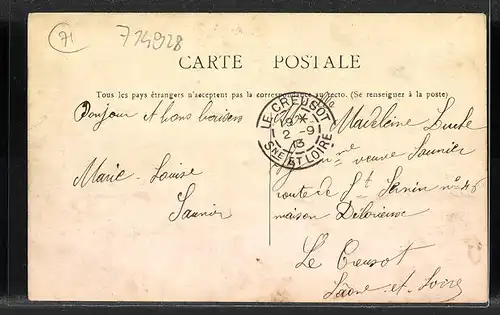 71
714928
CARTE POSTALE
Tous les pays étrangers n'acceptent pas la correspondance au recto. (Se renseigner à la poste)
Bonjour et bons baisers
Marie-Louise
Saunier
LE CREUSOT
19 *
2 - 9
13
SNE ET LOIRE
Mlle Madeleine
me veuve Saunier
route de St Sernin no 46
maison Délorieuse
Le Creusot
Saône-et-Loire